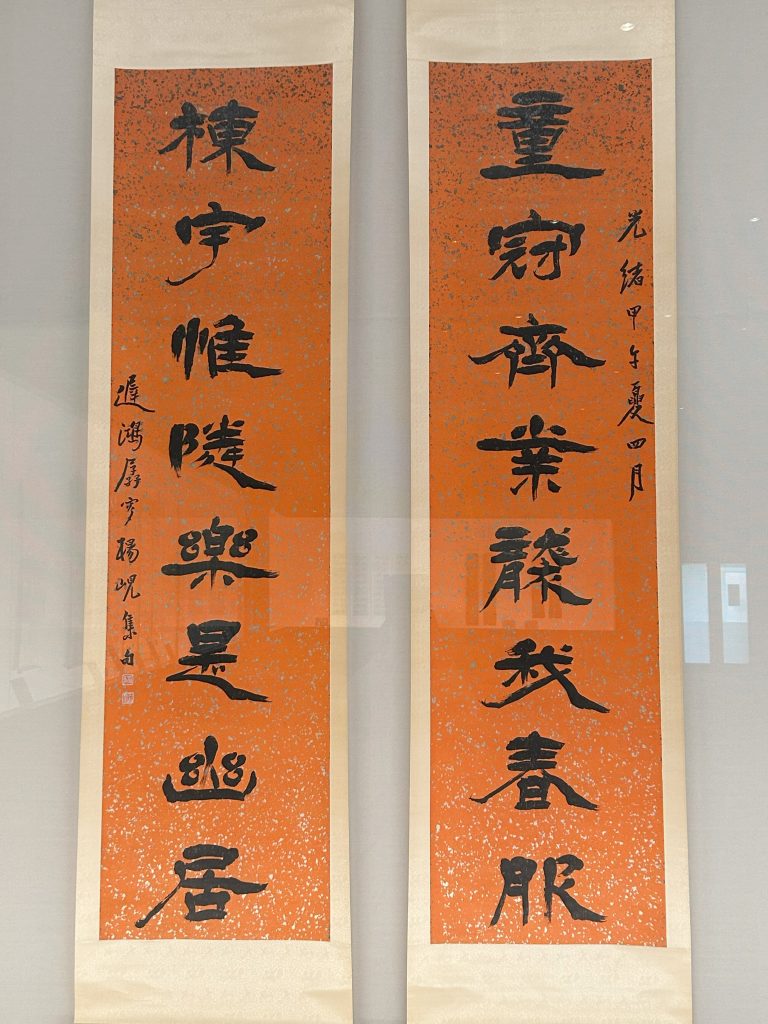 童冠齊業襲我春服
光緒甲午夏四月
棟宇惟隣樂是幽居
遲鴻孱叟楊峴集句